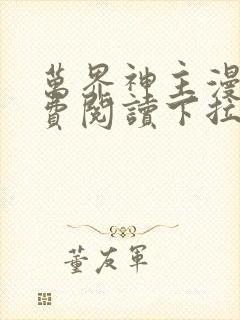 萬界神主漫
費閱讀下拉
董友軍